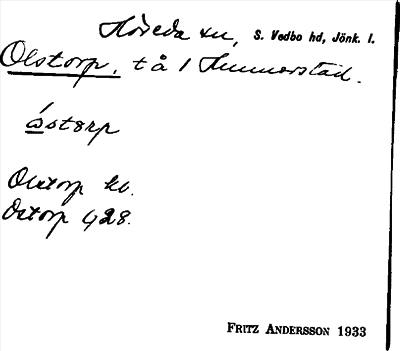 Höreda sn, S. Vedbo hd, Jönk. l.
Olstorp, t å 1 Hummerstad.
åstorp
Olstorp kb.
Ostorp G28.
FRITZ ANDERSSON 1933